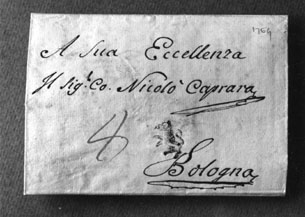 1764
A Sua Eccellenza
Il Sigr. Co. Nicolò Caprara
4
Bologna